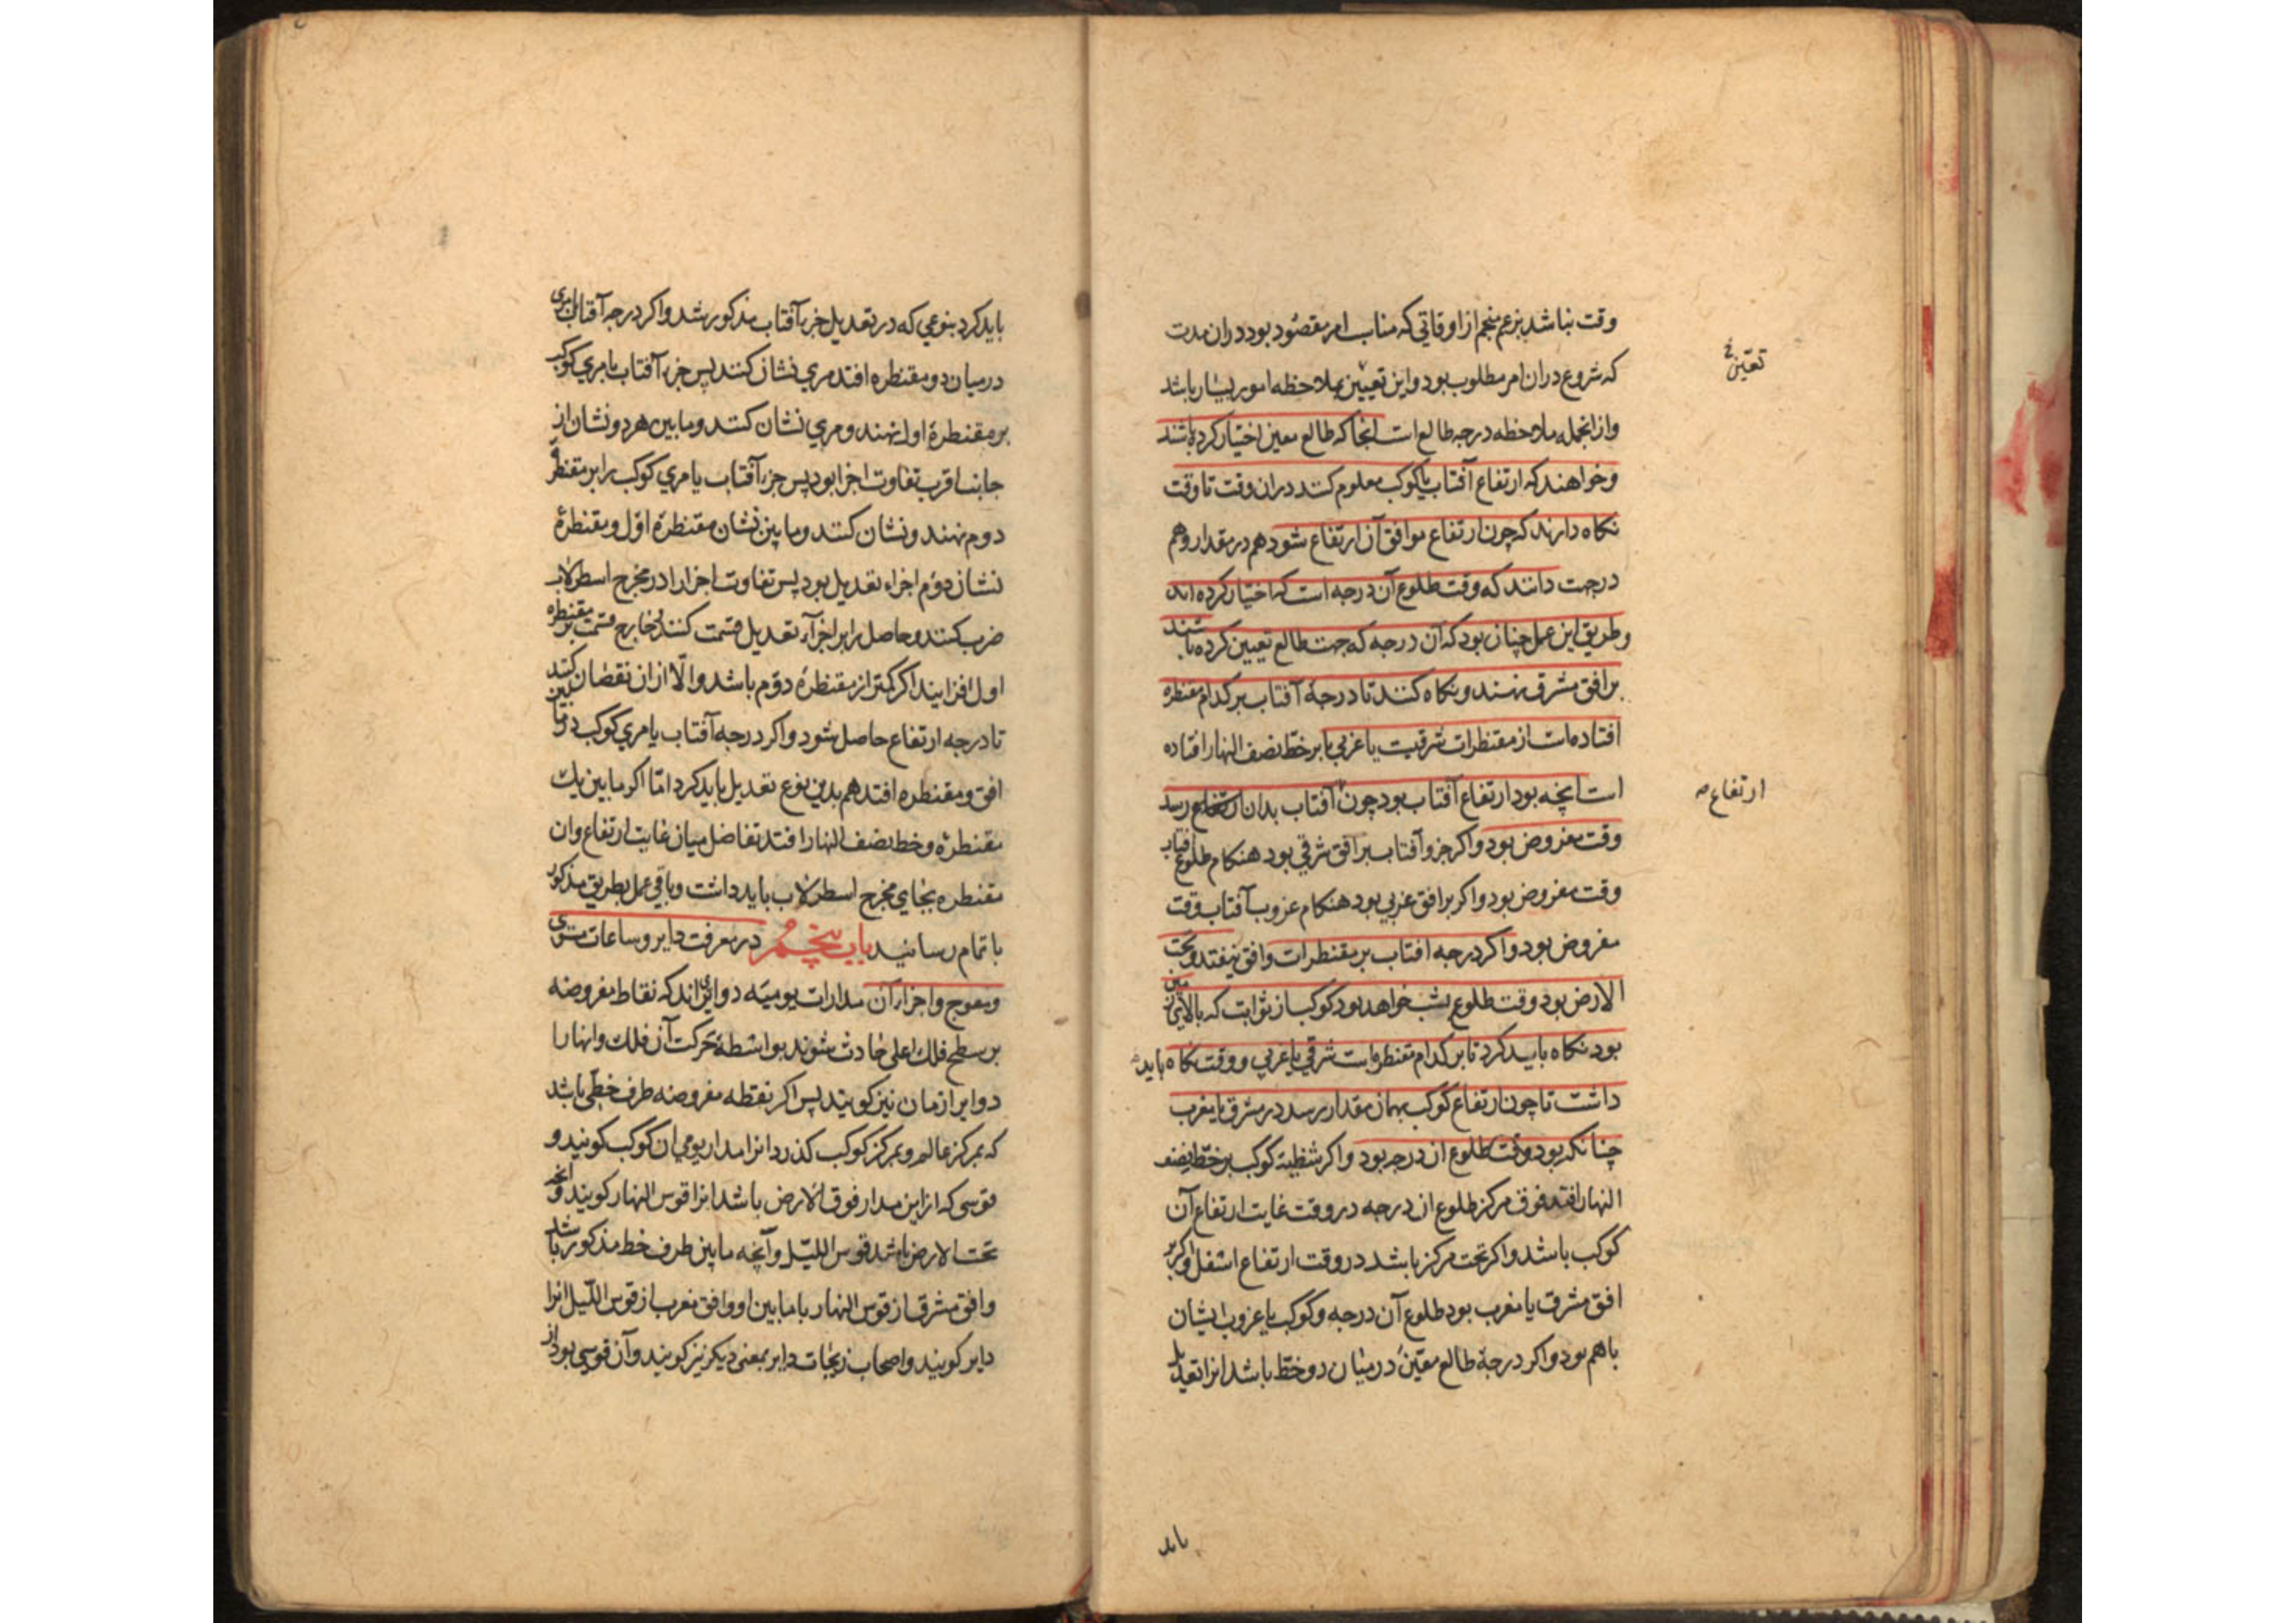 وقت بناشد بزعم منجم از اوقاتي که مناسب امر مقصود بود دران مدت
که شروع دران امر مطلوب بود و این تعیین بملاحظه امور بسیار باشد
تعیّن
و از انجمله ملاحظه درجه طالع است انجا که طالع معین اختیار کرده باشند
و خواهند که ارتفاع آفتاب یا کوکب معلوم کنند دران وقت تا وقت
نکاه دارند که چون ارتفاع موافق آن ارتفاع شود هم در مقدار و هم
درجهت دانند که وقت طلوع آن درجه است که اختیار کرده اند
و طریق این عمل چنان بود که آن درجه که جهت طالع تعیین کرده باشند
بر افق مشرق نهند و نکاه کنند تا درجهٔ آفتاب بر کدام مقنطره
افتاده است از مقنطرات شرقیت یا غربي یا بر خطّ نصف النهار افتاده
است انچه بود ارتفاع آفتاب بود چون آفتاب بدان ارتفاع رسد
ارتفاع صه
وقت مفروض بود و اکر جزو آفتاب بر افق شرقي بود هنکام طلوع افتاب
وقت مفروض بود و اکر بر افق غربي بود هنکام غروب آفتاب وقت
مفروض بود و اکر درجه افتاب بر مقنطرات و افق نیفتد و تحت
الارض بود وقت طلوع بشب خواهد بود کوکب از ثوابت که بالای زمین
بود نکاه باید کرد تا بر کدام مقنطره است شرقي یا غربي و وقت نکاه باید
داشت تا چون ارتفاع کوکب بهمان مقدار رسد در مشرق یا مغرب
چنانکه بود وقت طلوع ان درجه بود و اکر شظیهٔ کوکب بر خطّ نصف
النهار افتد فوق مرکز طلوع ان درجه در وقت غایت ارتفاع آن
کوکب باشد و اکر تحت مرکز باشد در وقت ارتفاع اسفل و اکر بر
افق مشرق یا مغرب بود طلوع آن درجه و کوکب یا غروب ایشان
با هم بود و اکر درجهٔ طالع معیّن در میان دو خطّ باشد انرا تعدیل
باید
باید کرد بنوعي که در تعدیل جزء آفتاب مذکور شد و اکر درجه آفتاب یا مری
در میان دو مقنطره افتد مري نشان کنند پس جزء آفتاب یا مري کوکب
بر مقنطرهٔ اول نهند و مري نشان کنند و ما بین هر دو نشان از
جانب اقرب تفاوت اجزا بود پس جزء آفتاب یا مري کوکب را بر مقنطرهٔ
دوم نهند و نشان کنند و ما بین نشان مقنطرهٔ اوّل و مقنطرهٔ
نشان دوّم اجزاء تعدیل بود پس تفاوت اجزا را در مخرج اسطرلاب
ضرب کنند و حاصل را بر اجزآء تعدیل قسمت کنند خارج قسمت بر مقنطره
اول افزایند اکر کمتر از مقنطرهٔ دوّم باشد و الّا از ان نقصان کنند
تا درجه ارتفاع حاصل شود و اکر درجه آفتاب یا مري کوکب در ما بین
افق و مقنطره افتد هم بدین نوع تعدیل باید کرد امّا اکر ما بین یك
مقنطرهٔ و خط نصف النهار افتد تفاضل میان غایت ارتفاع و ان
مقنطره بجای مخرج اسطرلاب باید داشت و باقي عمل بطریق مذکور
باتمام رسانید باب پنجم در معرفت دایر و ساعات مستوی
و معوج و اجزاء آن مدارات یومیّه دوایرٔاند که نقاط مفروضه
بر سطح فلك اعلی حادث شوند بواسطهٔ حرکت آن فلك و انها را
دوایر ازمان نیز کویند پس اکر نقطه مفروضه طرف خطّی باشد
که بمرکز عالم و بمرکز کوکب کذرد انرا مدار یومي ان کوکب کویند و
قوسی که از این مدار فوق الارض باشد انرا قوس النهار کویند و انچه
تحت الارض باشد قوس اللیل و آنچه ما بین طرف خط مذکور باشد
و افق مشرق از قوس النهار یا ما بین او و افق مغرب از قوس اللّیل انرا
دایر کویند و اصحاب زیجات دایر بمعنی دیکر نیز کویند و آن قوسي بود از